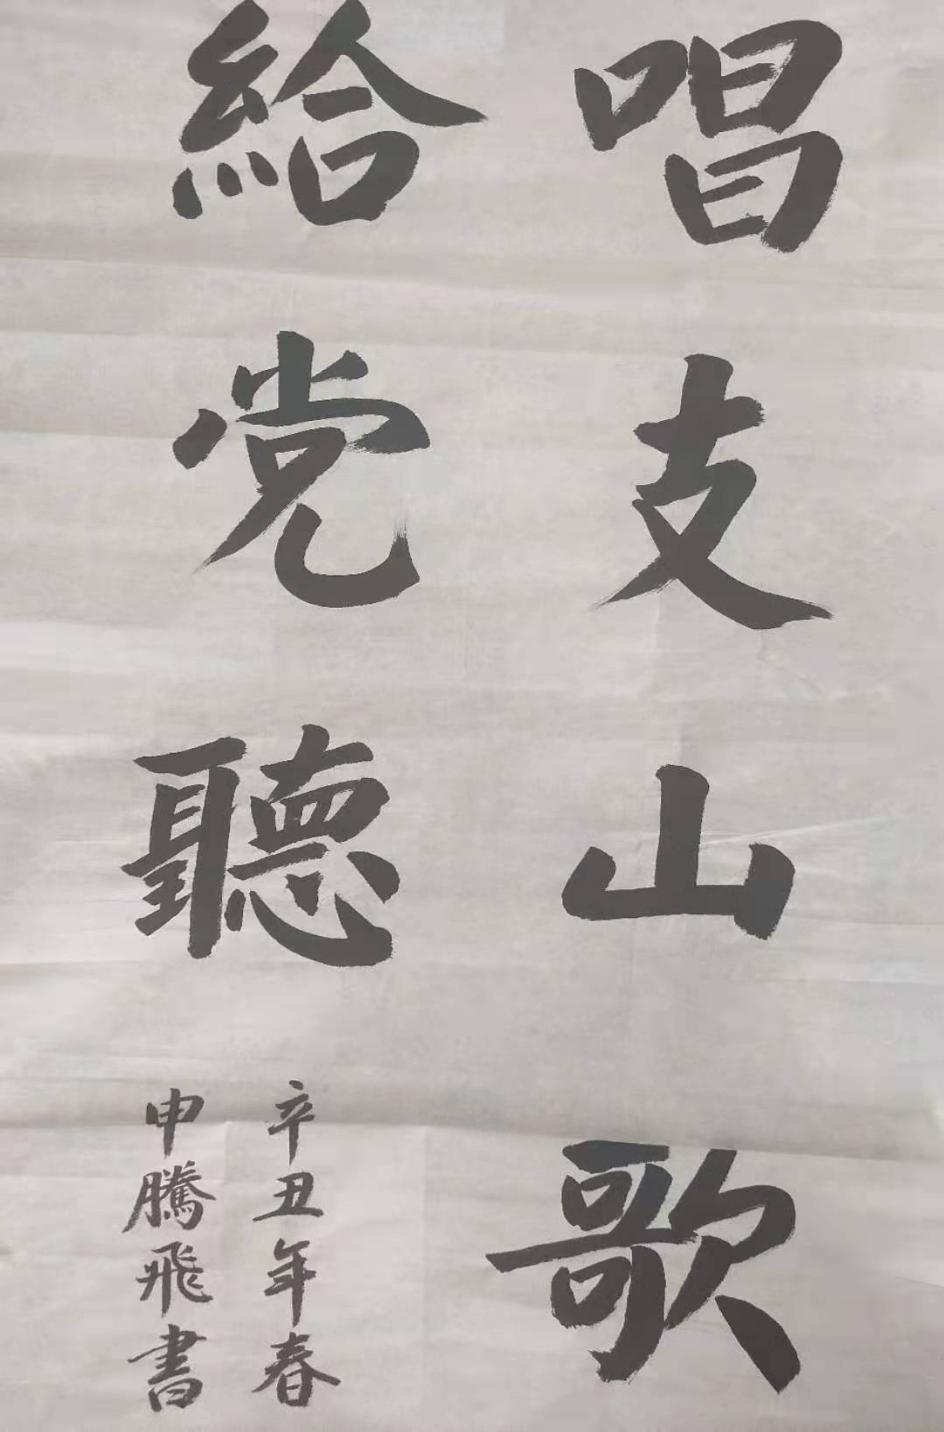 唱支山歌
給党聽
辛丑年春
申騰飛書